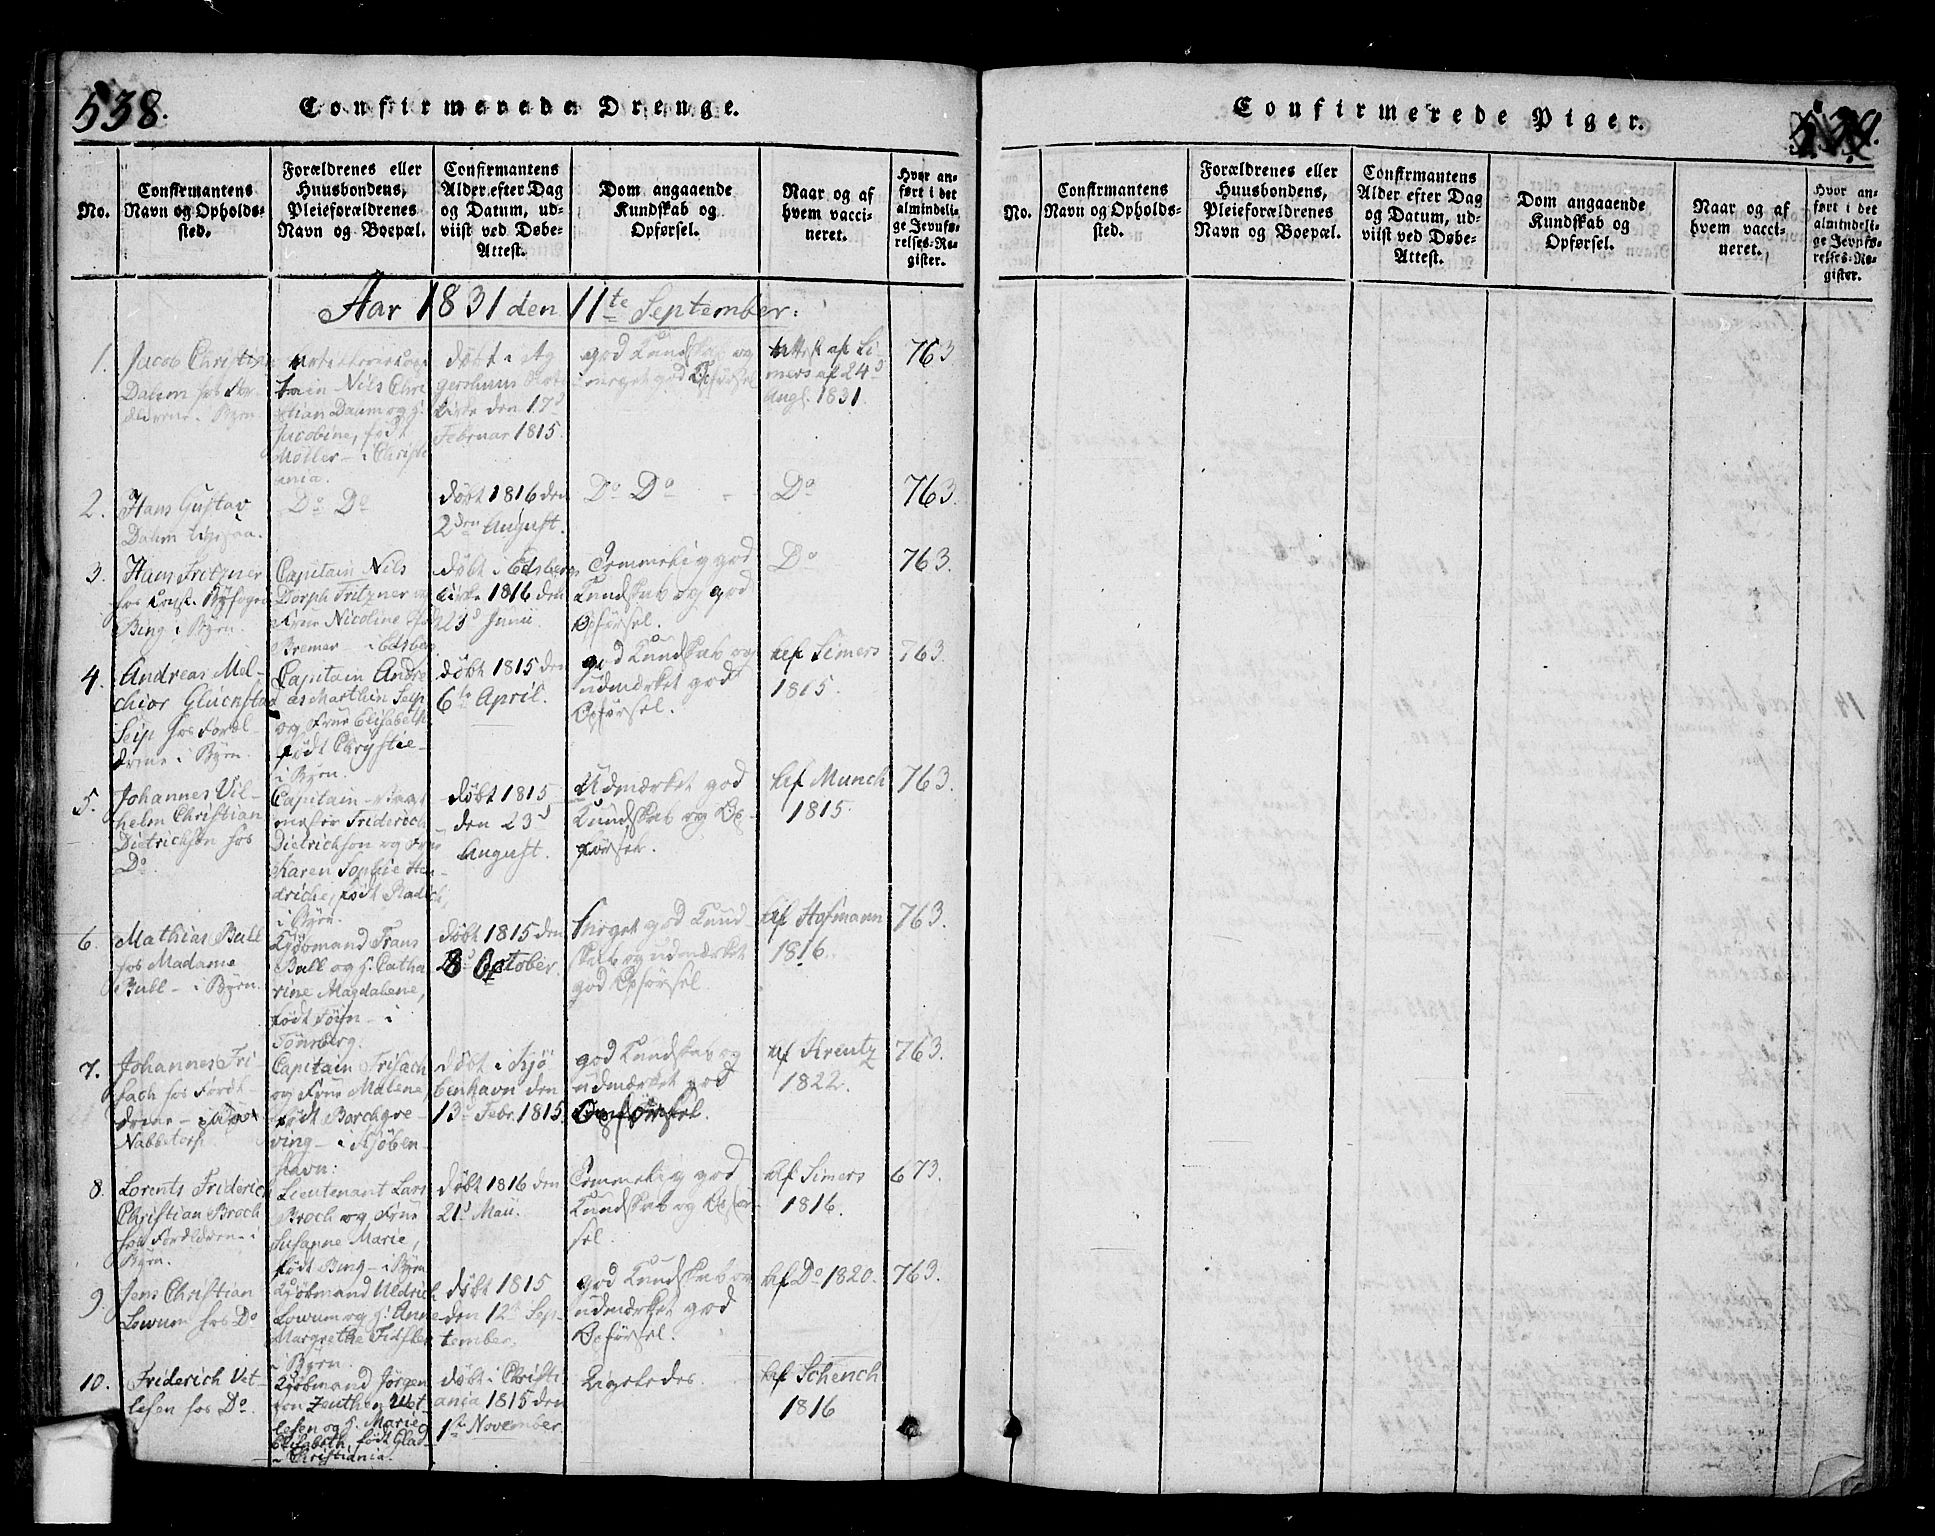 538.
Confirmerede Drenge.
No.
Confirmantens
Navn og Opholds-
sted.
Forældrenes eller
Huusbondens,
Pleieforældrenes
Navn og Boepæl.
Confirmantens
Alder efter Dag
og Datum, ud-
viist ved Døbe-
Attest.
Dom angaaende
Kundskab og
Opførsel.
Naar og af
hvem vacci-
neret.
Hvor an-
ført i det
almindeli-
ge Jevnfø-
relses-Re-
gister.
Aar 1831 den 11te September.
1.
Jacob Christian
Daum hos For-
ældrene i Byen
Nils Chri
stian Daum og H.
Jacobine, født
Møller - i Christi
ania.
døbt i Ag
gershuus
Kirke den 17d
Februar 1815.
god Kundskab og
meget god Opførsel
af Si
mers af 24d
Aug. 1831.
763
2.
Hans Gustav
Daum
Do Do
døbt 1816 den
2den August.
Do Do
Do
763.
3.
Hans Fritzner
hos Const. Byfoged
Bing i Byen.
Capitain Nils
Dorph Fritzner og
Frue Nicoline
Bremer - i Edsberg
døbt i Edsbergs
Kirke 1816 den
23d Junii.
Temmelig god
Kundskab og god
Opførsel.
Do
763.
4.
Andreas Mel-
chior Glückstad
Seip hos Foræl-
drene i Byen.
Capitain Andre
as Marthin Seip
og Frue Elisabeth
født Chrystie -
i Byen.
døbt 1815 den
6te April.
god Kundskab og
udmærket god
Opførsel.
af Simers
1815.
763.
5.
Johannes Vil-
helm Christian
Dietrichson hos
Do.
Capitain
Friderich
Dietrichson og Frue
Karen Sophie Hen-
driche, født Radich,
i Byen.
døbt 1815
den 23d
August.
Udmærket god
Kundskab og Op-
førsel.
af Munch
1815.
763.
6.
Mathias Bull
hos Madame
Bull - i Byen.
Kjøbmand Frans
Bull og H. Catha
rine Magdalene,
født Føyn - i
Tønsberg.
døbt 1815 den
8 October.
meget god Kund-
skab og udmærket
god Opførsel.
af Hofmann
1816.
763.
7.
Johannes Fri-
sach hos Foræl-
drene -
Nabbetorp.
Capitain Frisach
og Frue Malene,
født Borchgre-
ving - i Kjøben-
havn:
døbt i Kjø
benhavn den
13d Febr. 1815.
god Kundskab og
udmærket god
Opførsel.
af Krentz
1822.
763.
8.
Lorents Friderich
Christian Broch
hos Forældrene i
Byen.
Lieutenant Lars
Broch og Frue
Susanne Marie,
født Bing - i Byen
døbt 1816 den
21d Maii.
Temmelig god
Kundskab og Opfør-
sel.
af Simers
1816.
673.
9.
Jens Christian
Lowum hos Do
Kjøbmand Uldrich
Lowum og H. Anne
Margrethe
i Byen.
døbt 1815
den 12te Sep-
tember.
god Kundskab og
udmærket god
Opførsel.
af Do 1820.
763.
10.
Friderich Vet-
lesen hos Do.
Kjøbmand Jørgen
von Zeuthen Vet-
lesen og H. Marie
Elisabeth, født Glad-
i Christiania.
døbt i Christi-
ania 1815 den
1ste November
Ligeledes.
af Schench
1816
Confirmerede Piger.
No.
Confirmantens
Navn og Opholds-
sted.
Forældrenes eller
Huusbondens,
Pleieforældrenes
Navn og Boepæl.
Confirmantens
Alder efter Dag
og Datum, ud-
viist ved Døbe-
Attest.
Dom angaaende
Kundskab og
Opførsel.
Naar og af
hvem vacci-
neret.
Hvor an-
ført i det
almindeli-
ge Jevnfø-
relses-Re-
gister.